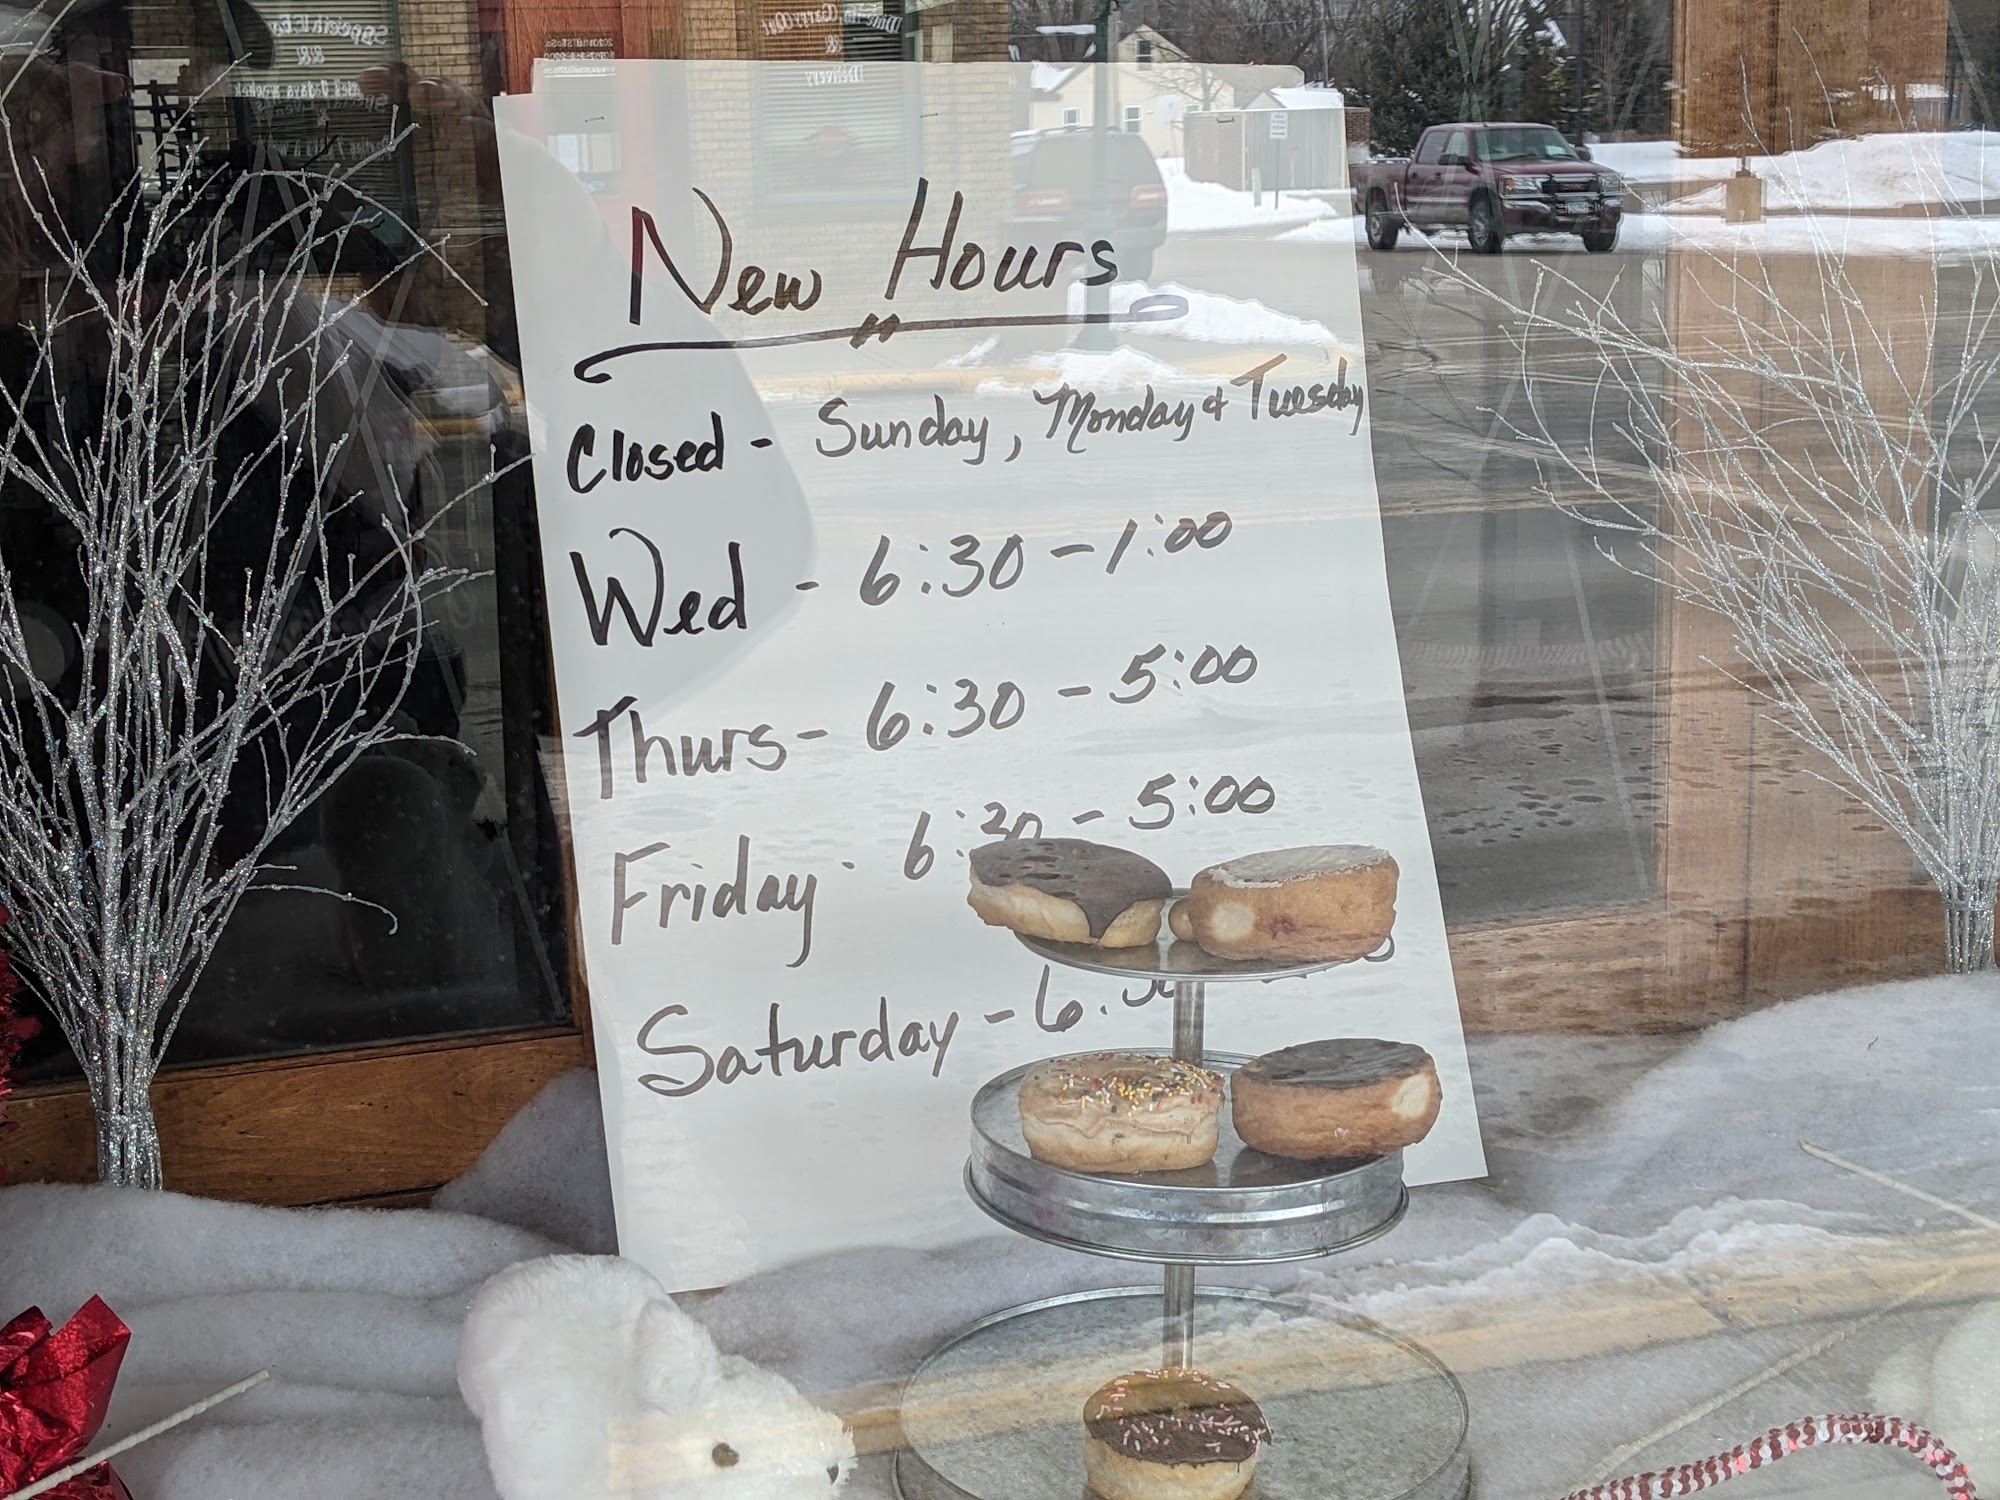 New Hours
Closed - Sunday, Monday & Tuesday
Wed - 6:30 - 1:00
Thurs - 6:30 - 5:00
Friday - 6:30 - 5:00
Saturday - 6:30